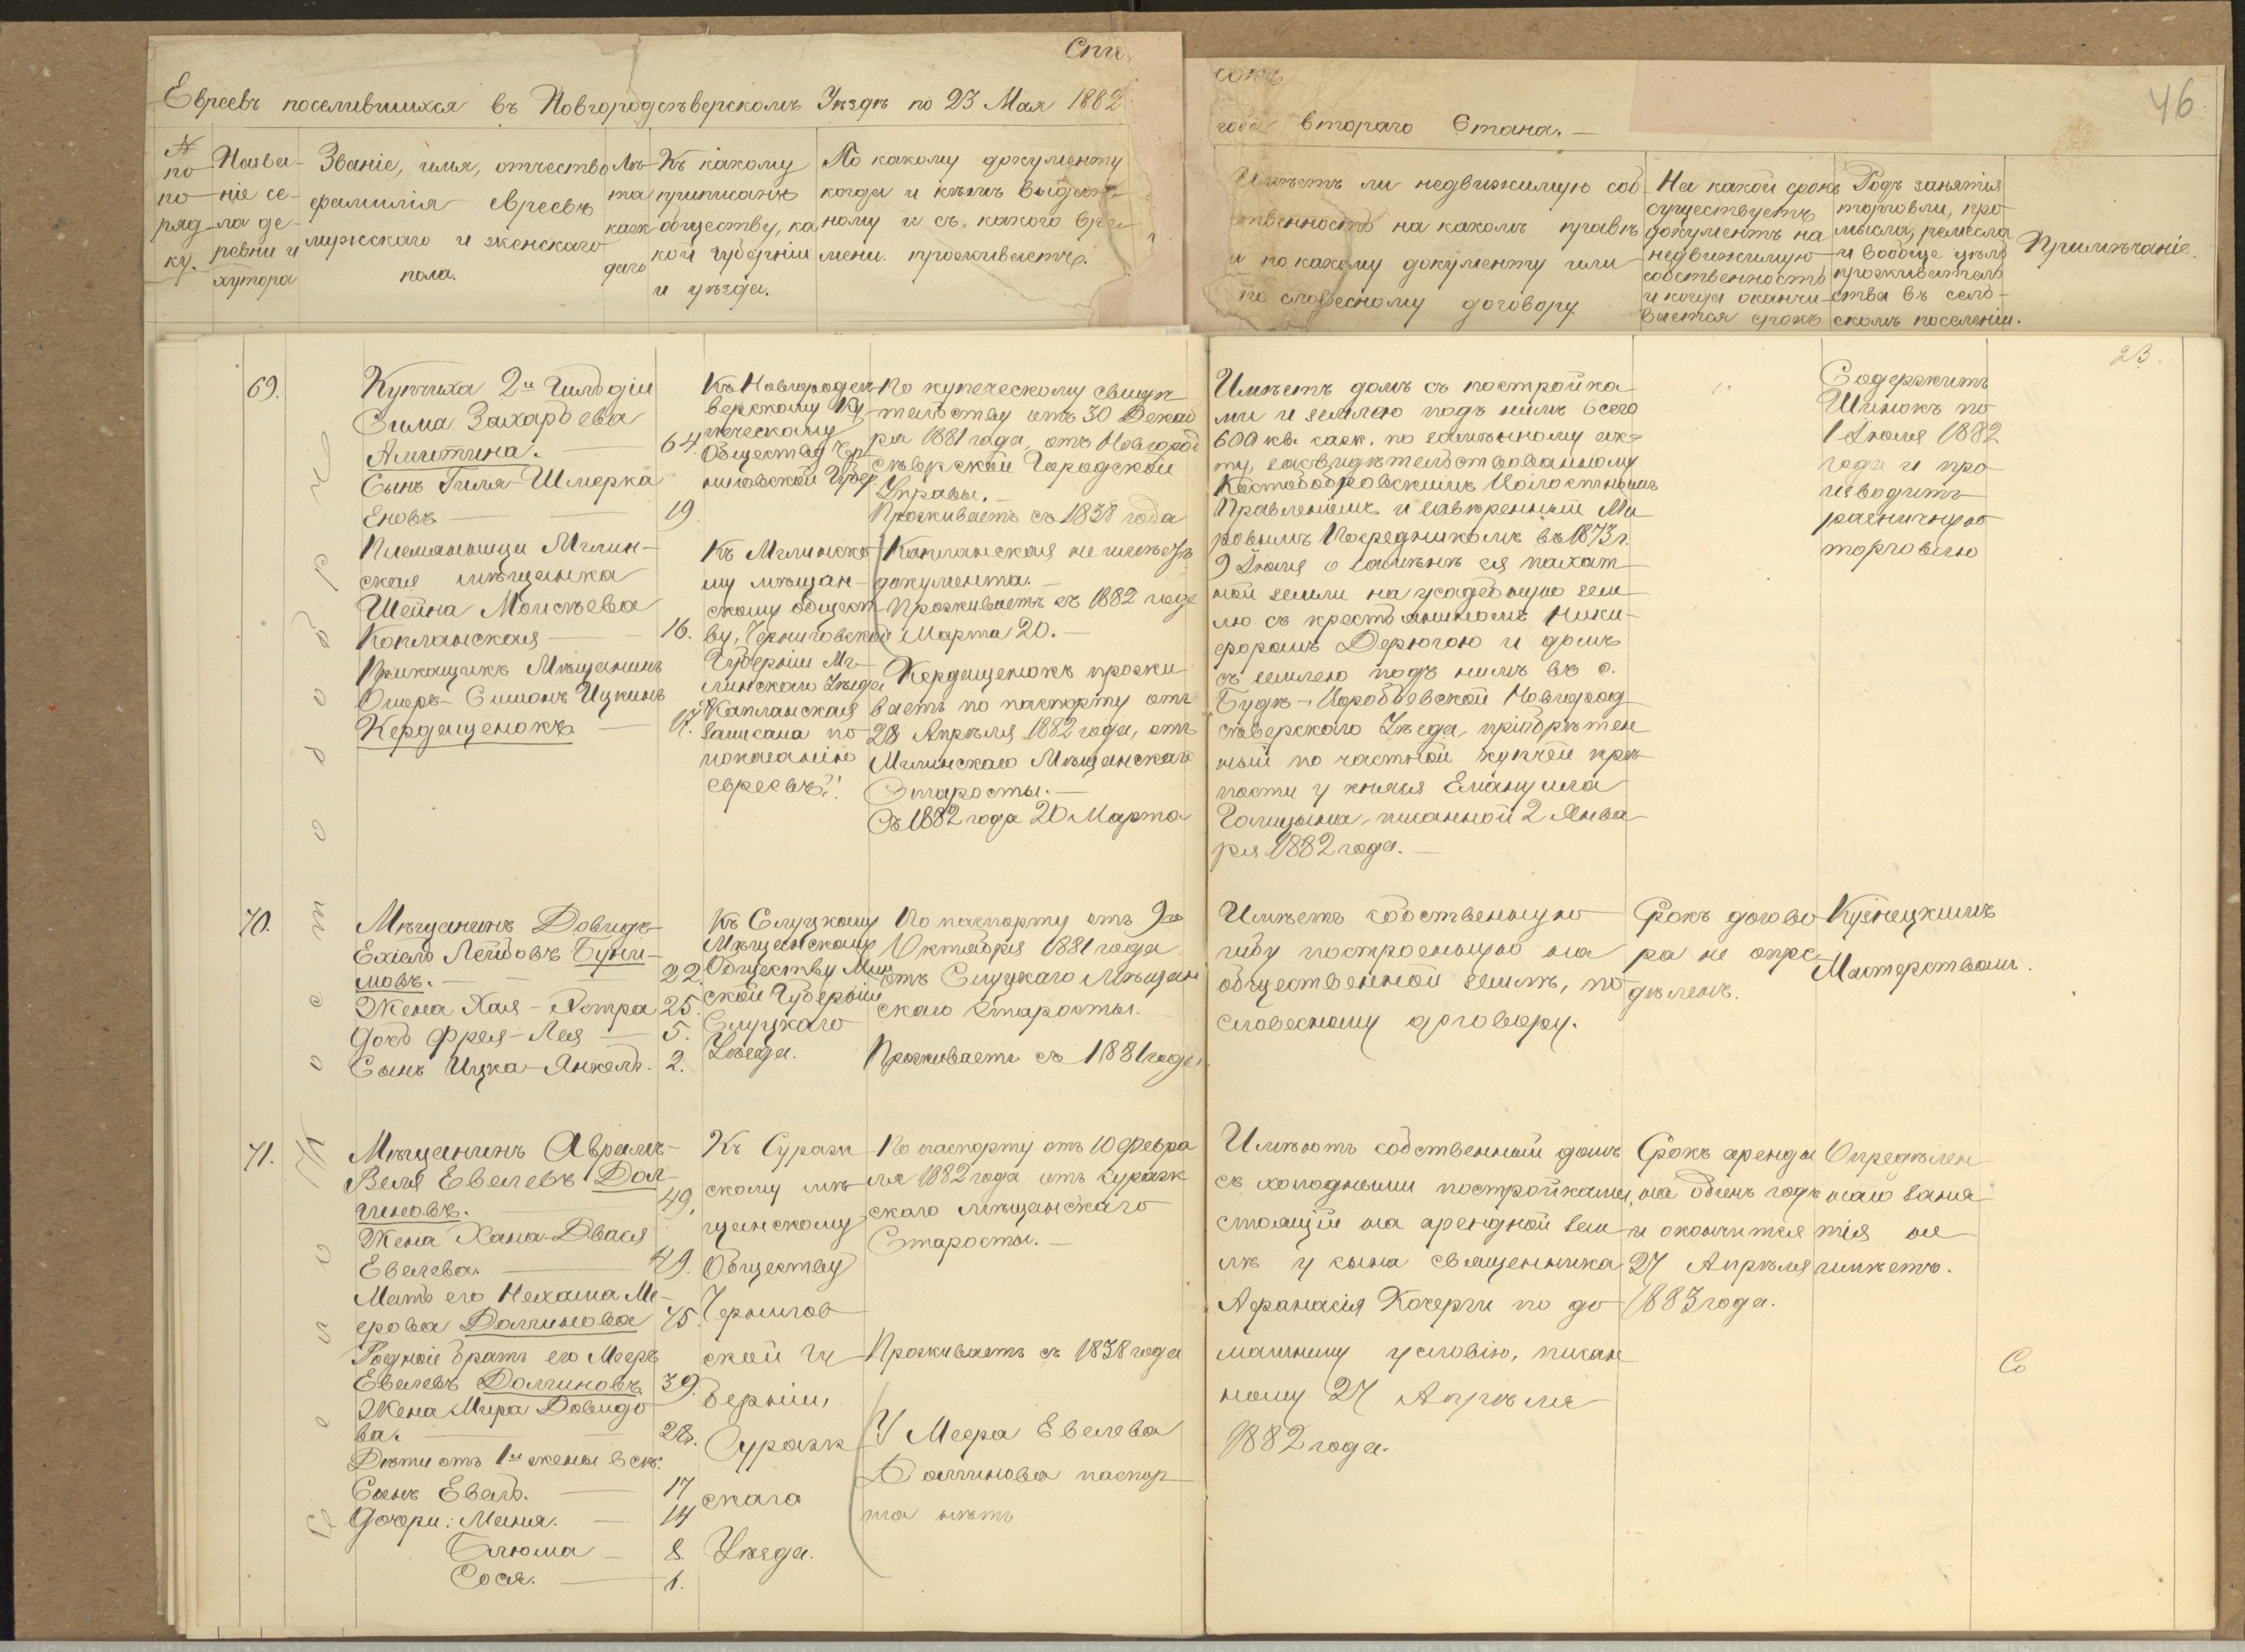 Спи
сокъ
46
Евреевъ поселившихся въ Новгородсѣверскомъ Уѣздѣ по 23 Мая 1882
года втораго Стана.
№
по
по
ряд
ку.
Назва-
ніе се-
ла де-
ревни и
хутора
Званіе, имя, отчество
фамилія евреевъ
мужскаго и женскаго
пола.
Лѣ-
та
каж
даго
Къ какому
приписанъ
обществу, ка
кой губерніи
и уѣзда.
По какому документу
когда и кѣмъ выдан-
ному и съ какого вре-
мени проживаетъ.
Имѣетъ ли недвижимую соб
ственность на какомъ правѣ
и по какому документу или
по словесному договору
На какой срокъ
существуетъ
документъ на
недвижимую
собственность
и когда оканчи-
вается срокъ
Родъ занятія
торговли, про
мысла, ремесла
и вообще цѣль
прожительст
ва въ сель-
скомъ поселеніи.
Примѣчаніе.
23.
Село Костобобръ
69.
Купчиха 2й Гильдіи
Сима Захарьева
Амитина. 64.
Сынъ Гиля-Шмерка
Еновъ 19
Племянница Мглин-
ская мѣщанка
Шейна Моисѣева
Копланская 16.
Прикащикъ Мѣщанинъ
Ошеръ-Симонъ Ицкинъ
Кердещенокъ 17.
Къ Новгородсѣ
верскому Ку
печескому
Обществу Чер
ниговской Губер.
Къ Мглинско
му мѣщан-
скому общест
ву, Черниговской
Губерніи Мг-
линскаго Уѣзда
Капланская
записана по
показанію
евреевъ?!
По купеческому свидѣ
тельству отъ 30 Декаб
ря 1881 года, отъ Новгород
сѣверской Городской
Управы.
Проживаетъ съ 1838 года
Капланская не имѣетъ
документа.
Проживаетъ съ 1882 года
Марта 20.
Кердещенокъ прожи
ваетъ по паспорту отъ
28 Апрѣля 1882 года, отъ
Мглинскаго Мѣщанскаго
Старосты.
Съ 1882 года 20 Марта
Имѣетъ домъ съ постройка
ми и землею подъ нимъ всего
600 кв. саж. по замѣнному ак-
ту, засвидѣтельствованному
Костобобровскимъ Волостнымъ
Правленіемъ и завѣренный Ми
ровымъ Посредникомъ въ 1873 г.
9 Іюля о замѣнѣ ея пахат
ной земли на усадебную зем
лю съ крестьяниномъ Ники-
форомъ Дерюгою и домъ
съ землею подъ нимъ въ с.
Будѣ-Воробьевской Новгород
сѣверскаго Уѣзда, пріобрѣтен
ный по частной купчей крѣ
пости у князя Емануила
Голицына, писанной 2 Янва
ря 1882 года.
Содержитъ
Шинокъ по
1 Іюля 1882
года и про
изводитъ
различную
торговлю
70.
Мѣщанинъ Довидъ-
Ехіель Лейбовъ Буни-
мовъ. 22.
Жена Хая-Эстра 25.
Дочь Фрея-Лея 5.
Сынъ Ицка-Янкель. 2.
Къ Слуцкому
Мѣщанскому
Обществу Мин
ской Губерніи
Слуцкаго
Уѣзда.
По паспорту отъ 9го
Октября 1881 года
отъ Слуцкаго Мѣщан
скаго Старосты.
Проживаетъ съ 1881 года.
Имѣетъ собственную
избу построенную на
общественной землѣ, по
словесному договору.
Срокъ догово
ра не опре
дѣленъ.
Кузнецкимъ
Мастерствомъ.
71.
Мѣщанинъ Аврамъ-
Веля Евелевъ Дол-
гиновъ. 49.
Жена Хана-Двася
Евелева. 49.
Мать его Нехама Ме-
ерова Долгинова 75.
Родной братъ его Мееръ
Евелевъ Долгиновъ 39.
Жена Мира Довидо
ва. 28.
Дѣти отъ 1й жены всѣ:
Сынъ Евель. 17
Дочери: Маня. 14
Блюма 8.
Сося. 6.
Къ Сураж
скому мѣ
щанскому
Обществу
Чернигов
ской Гу
берніи,
Сураж
скаго
Уѣзда.
По паспорту отъ 10 Февра
ля 1882 года отъ Сураж
скаго мѣщанскаго
Старосты.
Проживаетъ съ 1838 года
У Меера Евелева
Долгинова паспор
та нѣтъ
Имѣютъ собственный домъ
съ холодными постройками,
стоящій на арендной зем
лѣ у сына священника
Афанасія Кочерги по до
машнему условію, писан
ному 27 Апрѣля
1882 года.
Срокъ аренды
на одинъ годъ
и окончится
27 Апрѣля
1883 года.
Опредѣлен
наго заня
тія не
имѣетъ.
Со